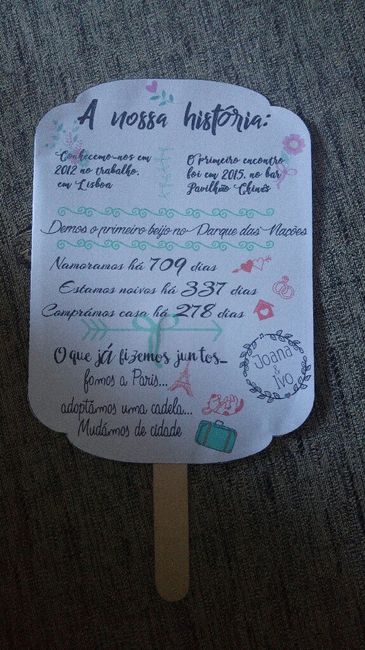 A nossa história:
Conhecemo-nos em
2012 no trabalho,
em Lisboa
O primeiro encontro
foi em 2015, no bar
Pavilhão Chinês
Demos o primeiro beijo no Parque das Nações
Namoramos há 709 dias
Estamos noivos há 337 dias
Comprámos casa há 278 dias
O que já fizemos juntos...
fomos a Paris...
adoptámos uma cadela...
Mudámos de cidade
Joana
&
Ivo